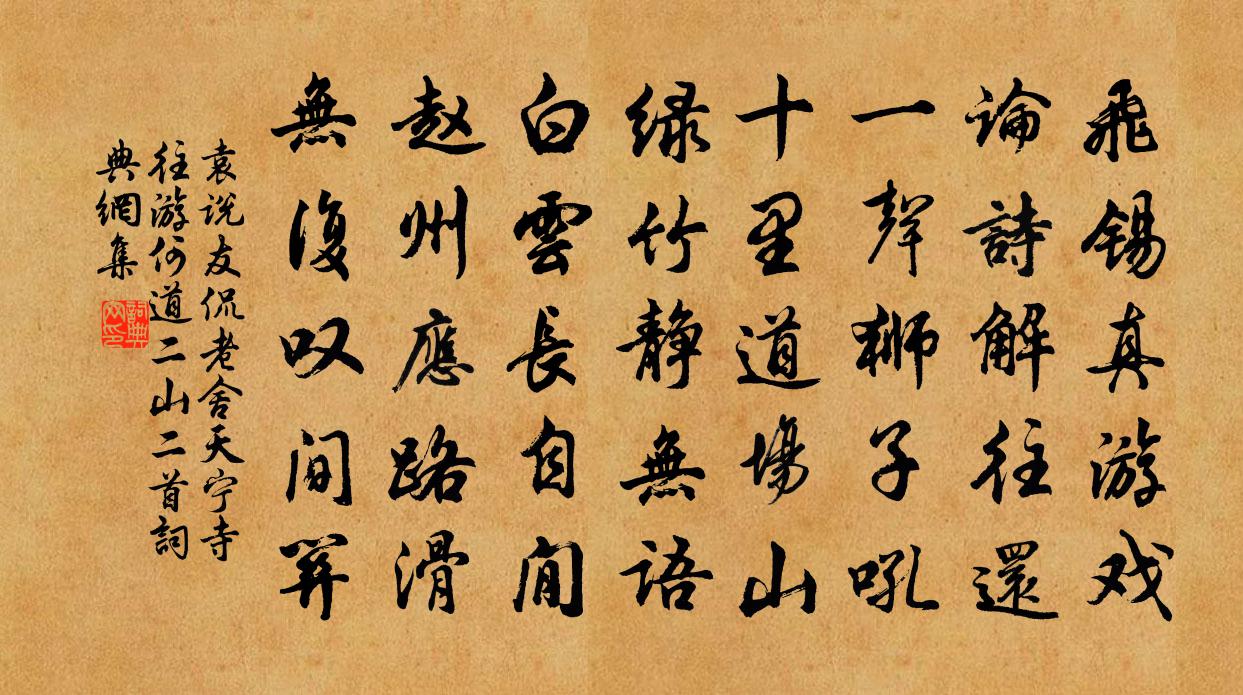 飛錫真游戏
論詩解往還
一聲狮子吼
十里道場山
緑竹静無語
白雲長自閒
赵州應路滑
無復叹間關
袁说友侃老舍天宁寺
往游何道二山二首詞
典網集
詞典
网印